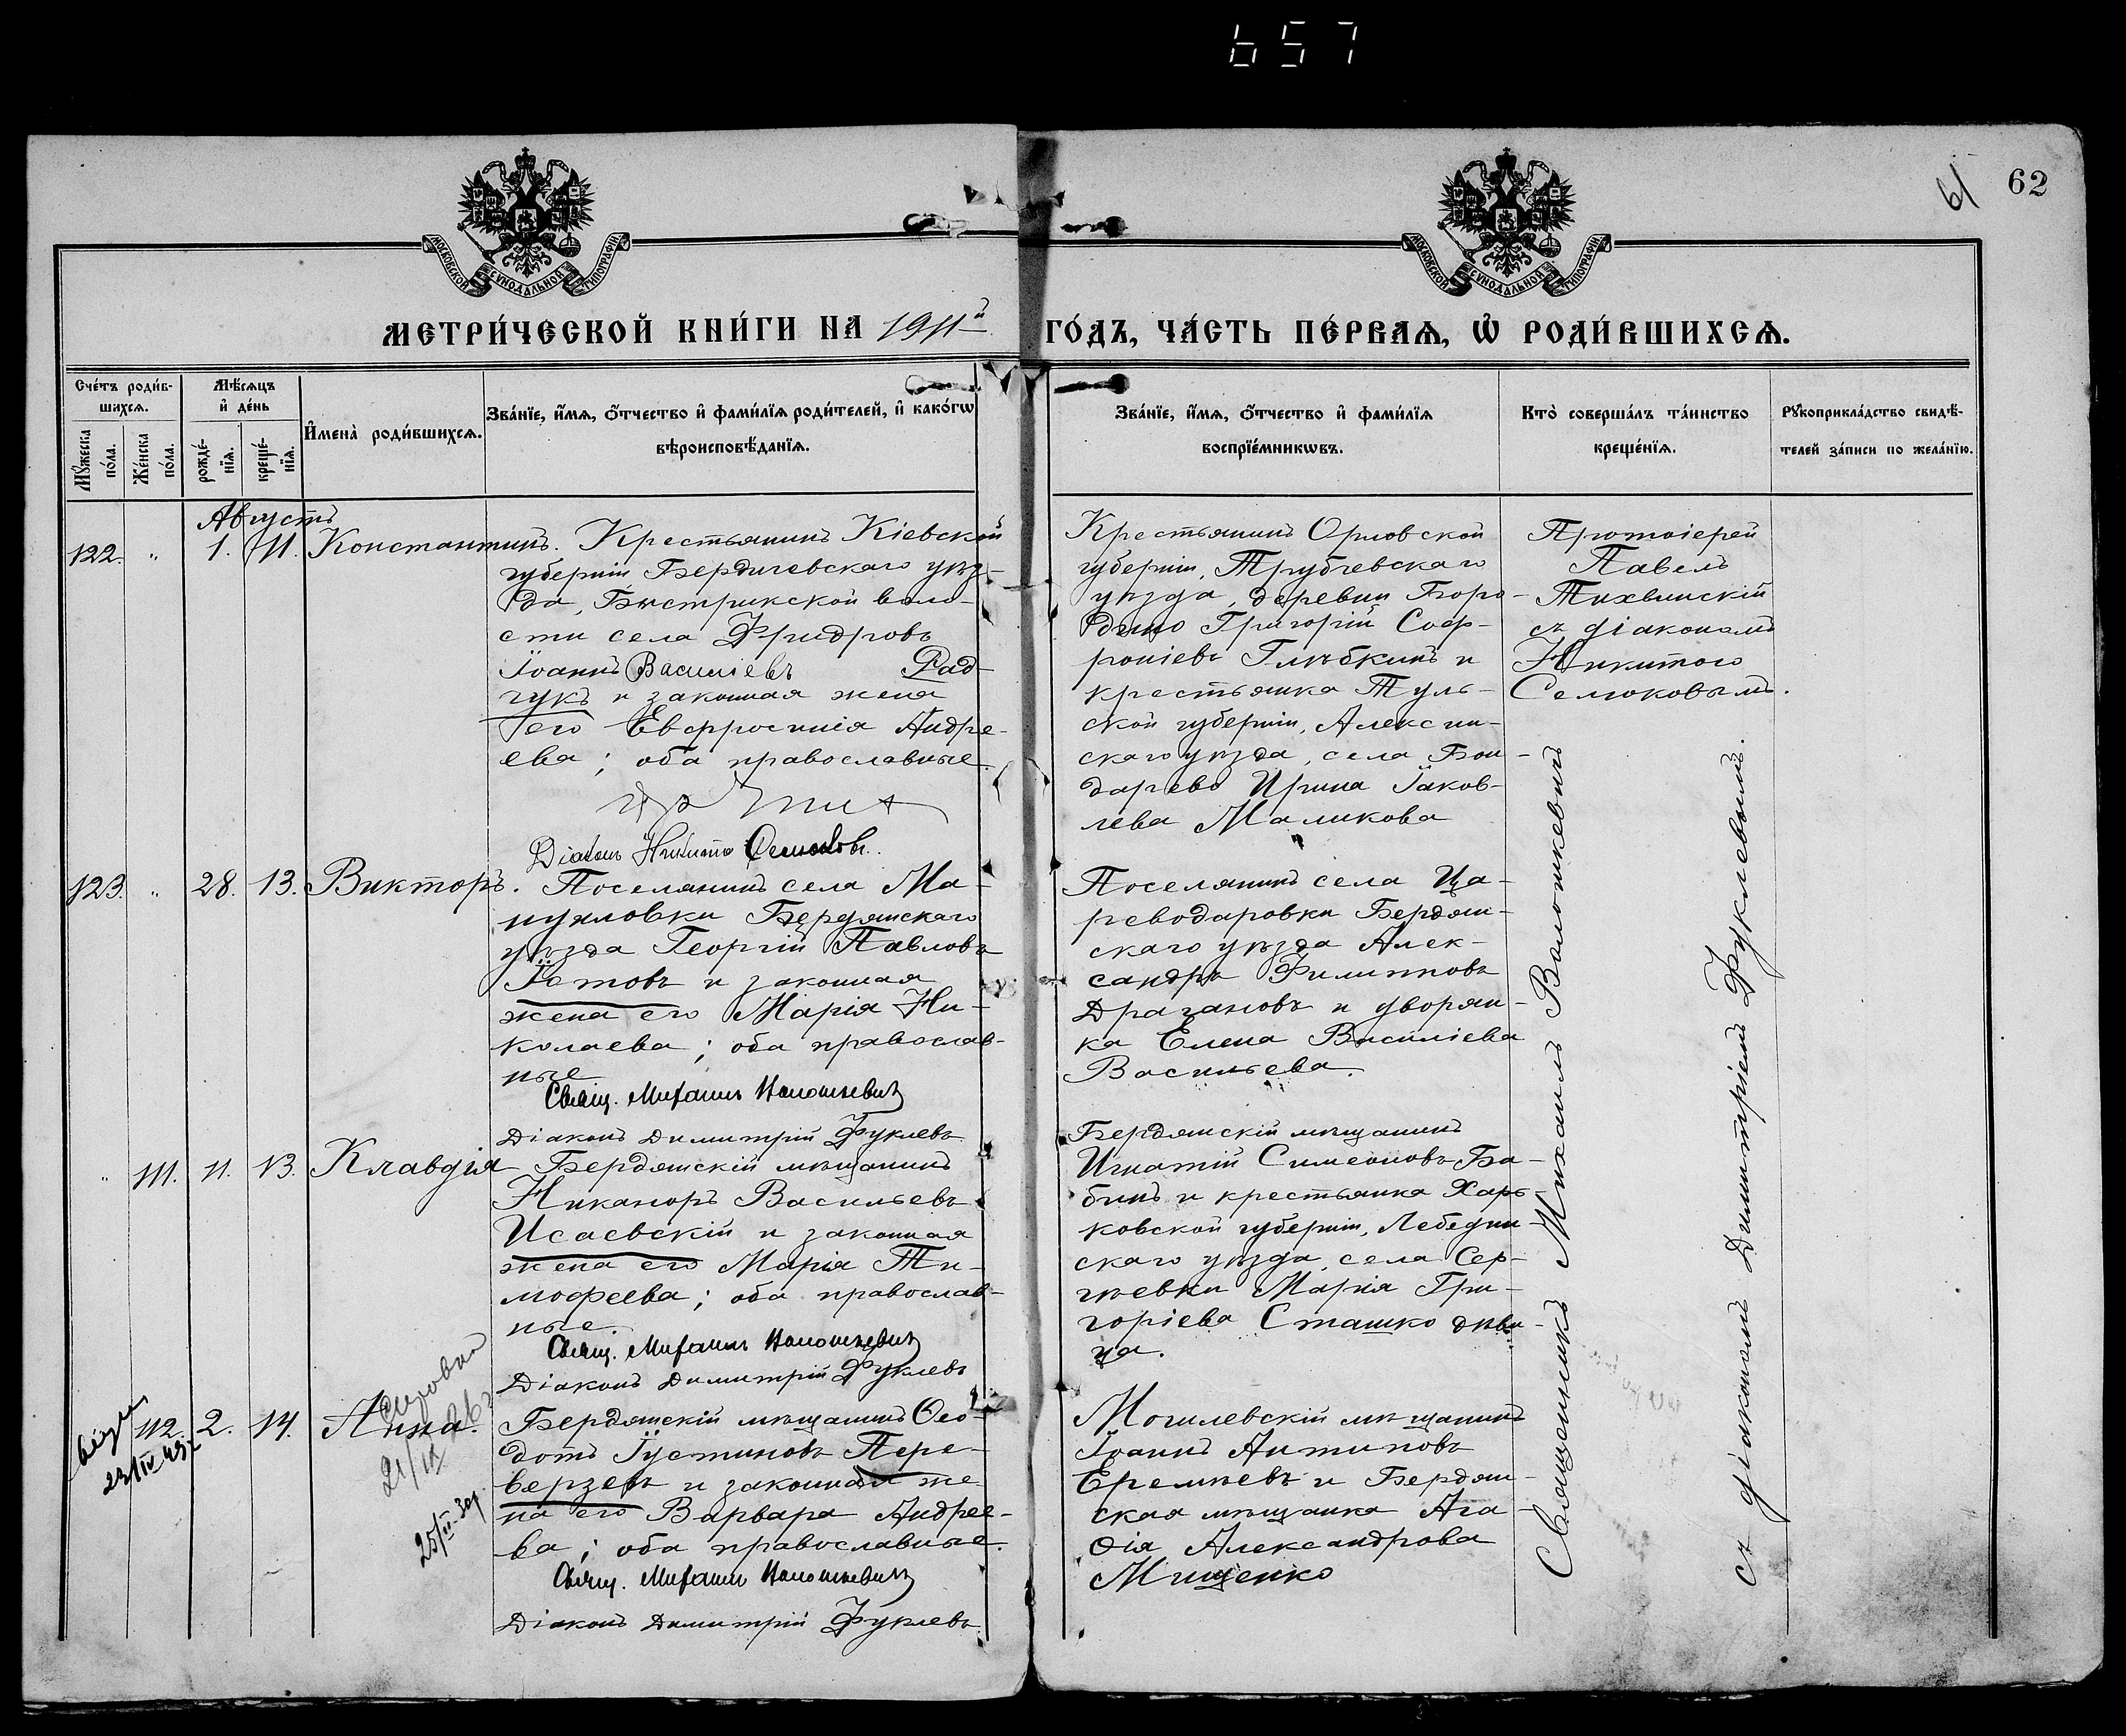 657
61 62
МОСКОВСКОЙ СѴНОДАЛЬНОЙ ТИПОГРАФІИ.
МОСКОВСКОЙ СѴНОДАЛЬНОЙ ТИПОГРАФІИ.
МЕТРИ́ЧЕСКОЙ КНИ́ГИ НА 1911й ГО́ДЪ, ЧА́СТЬ ПЕ́РВАѦ, Ѡ҆ РОДИ́ВШИХСѦ.
Сче́тъ роди́в-
шихсѧ.
Мꙋ́жеска по́ла.
Же́нска по́ла.
Мѣ́сѧцъ
и҆ де́нь
рожде́-
нїѧ.
креще́-
нїѧ.
И҆мена̀ роди́вшихсѧ.
Зва́нїе, и҆́мѧ, ѻ҆́тчество и҆ фами́лїѧ роди́телей, и҆ како́гѡ
вѣроисповѣ́данїѧ.
Зва́нїе, и҆́мѧ, ѻ҆́тчество и҆ фами́лїѧ
воспрїе́мникѡвъ.
Кто̀ соверша́лъ та́инство
креще́нїѧ.
Рꙋкоприкла́дство свидѣ́-
телей за́писи по жела́нїю.
Августъ
122. " 1. 11. Константинъ. Крестьянинъ Кіевской
губерніи, Бердичевскаго уѣз-
да, Быстрикской воло-
сти села Фридровъ
Іоаннъ Василіевъ Рад-
чукъ и законная жена
его Евфросинія Андре-
ева; оба православные.
Діаконъ Никита Селюковъ.
Крестьянинъ Орловской
губерніи, Трубчевскаго
уѣзда, деревни Боро-
дино Григорій Соф-
роніевъ Глѣбкинъ и
крестьянка Туль-
ской губерніи, Алексин-
скаго уѣзда, села Бон-
дарево Ирина Іаков-
лева Маликова
Протоіерей
Павелъ
Тихвинскій
съ діакономъ
Никитою
Селюковымъ.
123. " 28. 13. Викторъ. Поселянинъ села Ма-
нуиловки Бердянскаго
уѣзда Георгій Павловъ
Іотовъ и законная
жена его Марія Ни-
колаева; оба православ-
ные
Свящ. Михаилъ Волошкевичъ
Діаконъ Димитрій Фуклевъ
Поселянинъ села Ца-
реводаровки Бердян-
скаго уѣзда Алек-
сандръ Филипповъ
Драгановъ и дворян-
ка Елена Василіева
Васильева.
" 111. 11. 13. Клавдія Бердянскій мѣщанинъ
Никаноръ Васильевъ
Исаевскій и законная
жена его Марія Ти-
мофеева; оба православ-
ные.
Свящ. Михаилъ Волошкевичъ
Діаконъ Димитрій Фуклевъ
Бердянскій мѣщанинъ
Игнатій Симеоновъ Ба-
бинъ и крестьянка Харь-
ковской губерніи, Лебедин-
скаго уѣзда, села Сер-
гѣевки Марія Гри-
горіева Сташко дѣви-
ца.
112. 2. 14. Анна. Бердянскій мѣщанинъ Ѳео-
дотъ Іустиновъ Пере-
верзевъ и законная же-
на его Варвара Андрее-
ва; оба православные.
Свящ. Михаилъ Волошкевичъ
Діаконъ Димитрій Фуклевъ
Могилевскій мѣщанинъ
Іоаннъ Антиповъ
Еремѣевъ и Бердян-
ская мѣщанка Ага-
ѳія Александрова
Мищенко
Священникъ Михаилъ Волошкевичъ
съ діакономъ Димитріемъ Фуклевымъ.